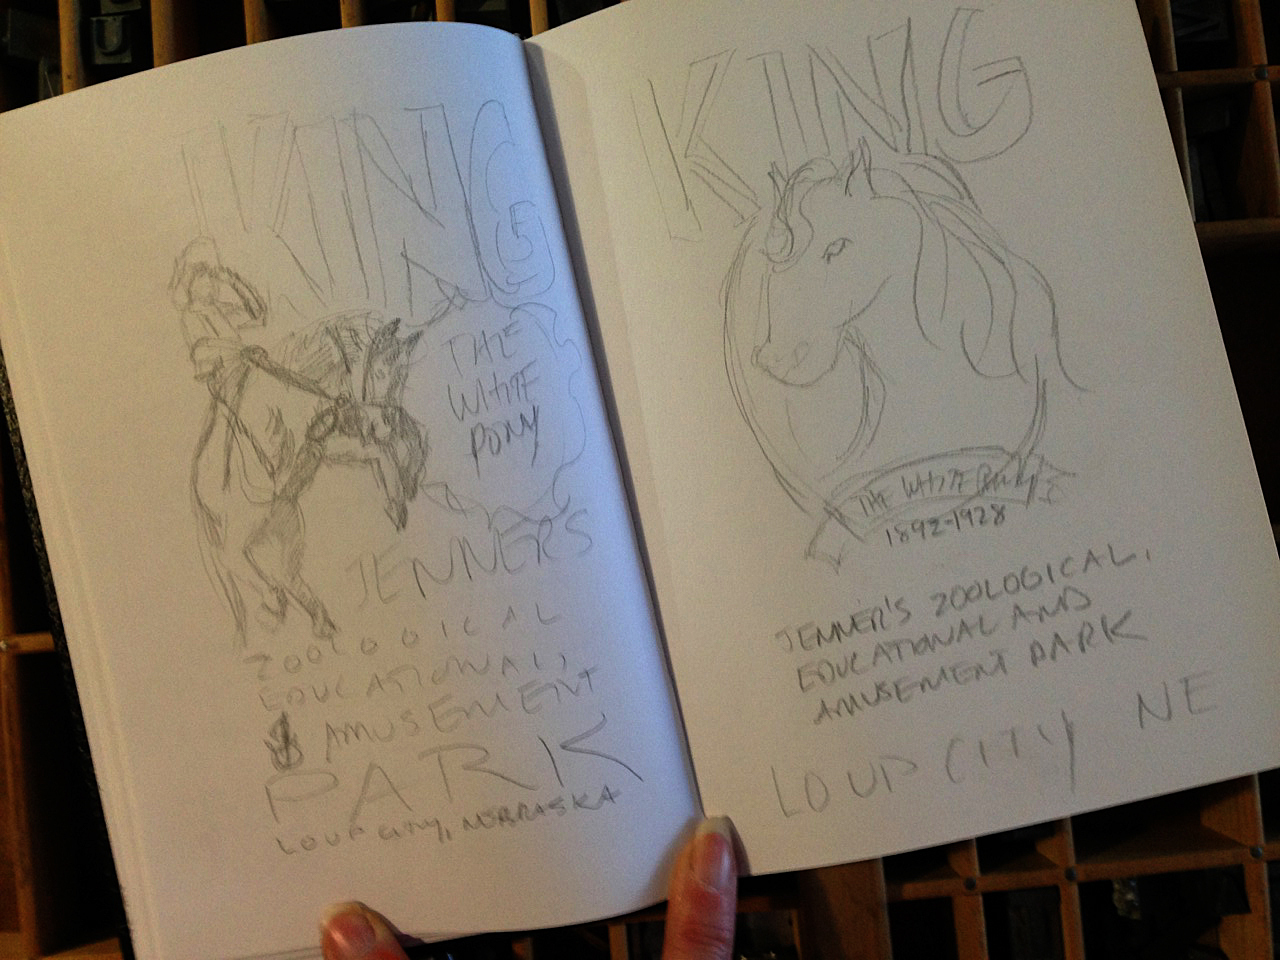 U
KING
THE
WHITE
PONY
JENNERS
ZOOLOGICAL
EDUCATIONAL,
& AMUSEMENT
PARK
LOUP CITY, NEBRASKA
KING
THE WHITE PONY
1892-1928
JENNER'S ZOOLOGICAL,
EDUCATIONAL AND
AMUSEMENT PARK
LOUP CITY NE